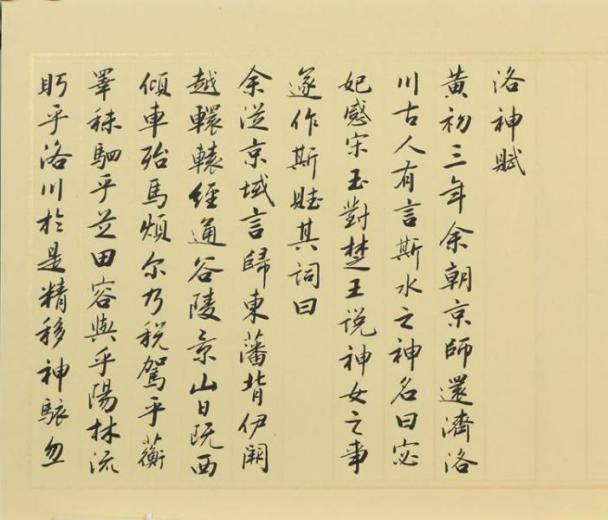 洛神賦
黄初三年余朝京師還濟洛
川古人有言斯水之神名曰宓
妃感宋玉對楚王说神女之事
遂作斯賦其詞曰
余從京域言歸東藩背伊闕
越轘轅經通谷陵景山日既西
傾車殆馬煩尔乃税駕乎蘅
睪秣駟乎芝田容與乎陽林流
眄乎洛川於是精移神駭忽